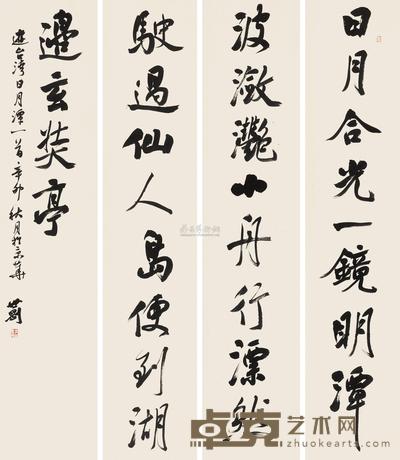 日月合光一鏡明潭
波瀲灩小舟行漂然
駛過仙人島便到湖
邊玄奘亭
遊台灣日月潭一首辛卯秋月於京華
卓克艺术网
zhuokearts.com